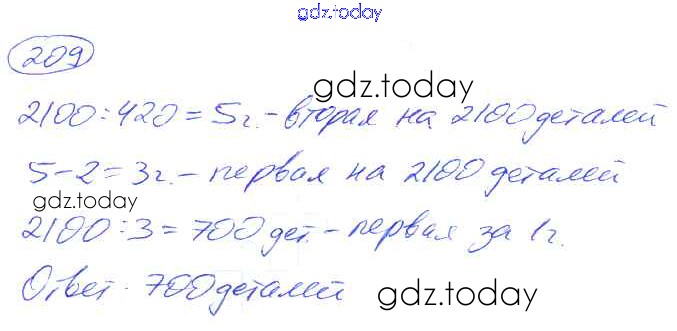 gdz.today
209
gdz.today
2100:420=5г.-вторая на 2100 деталей
5-2=3г.-первая на 2100 деталей
gdz.today
2100:3=700 дет.-первая за 1г.
Ответ. 700 деталей
gdz.today